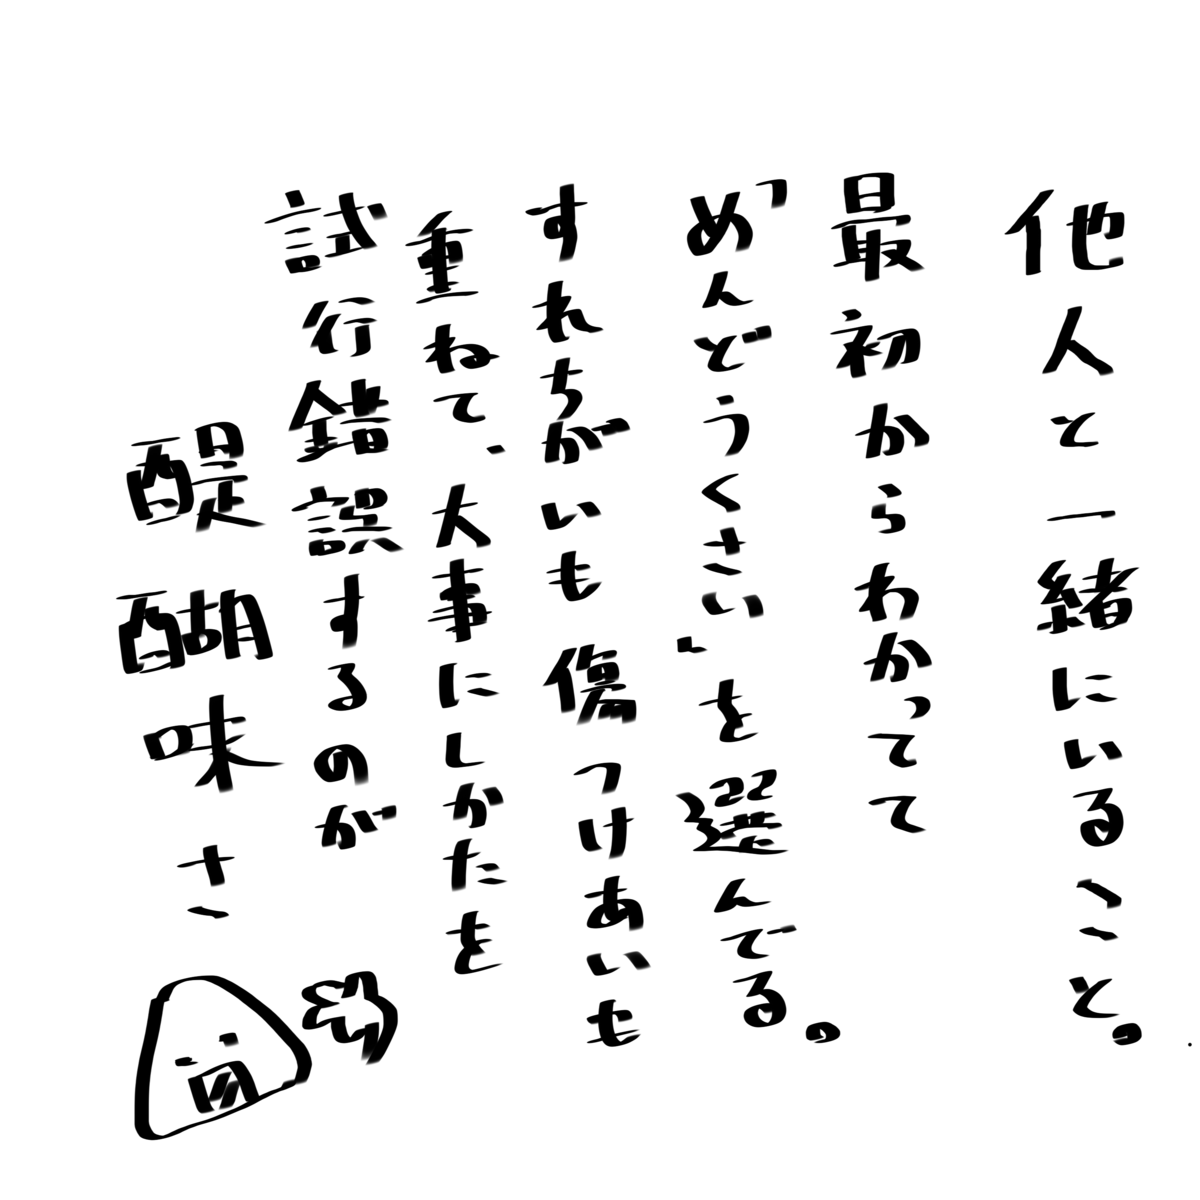 他人と一緒にいること。
最初からわかってて
「めんどうくさい」を選んでる。
すれちがいも傷つけあいも
重ねて、大事にしかたを
試行錯誤するのが
醍醐味さ